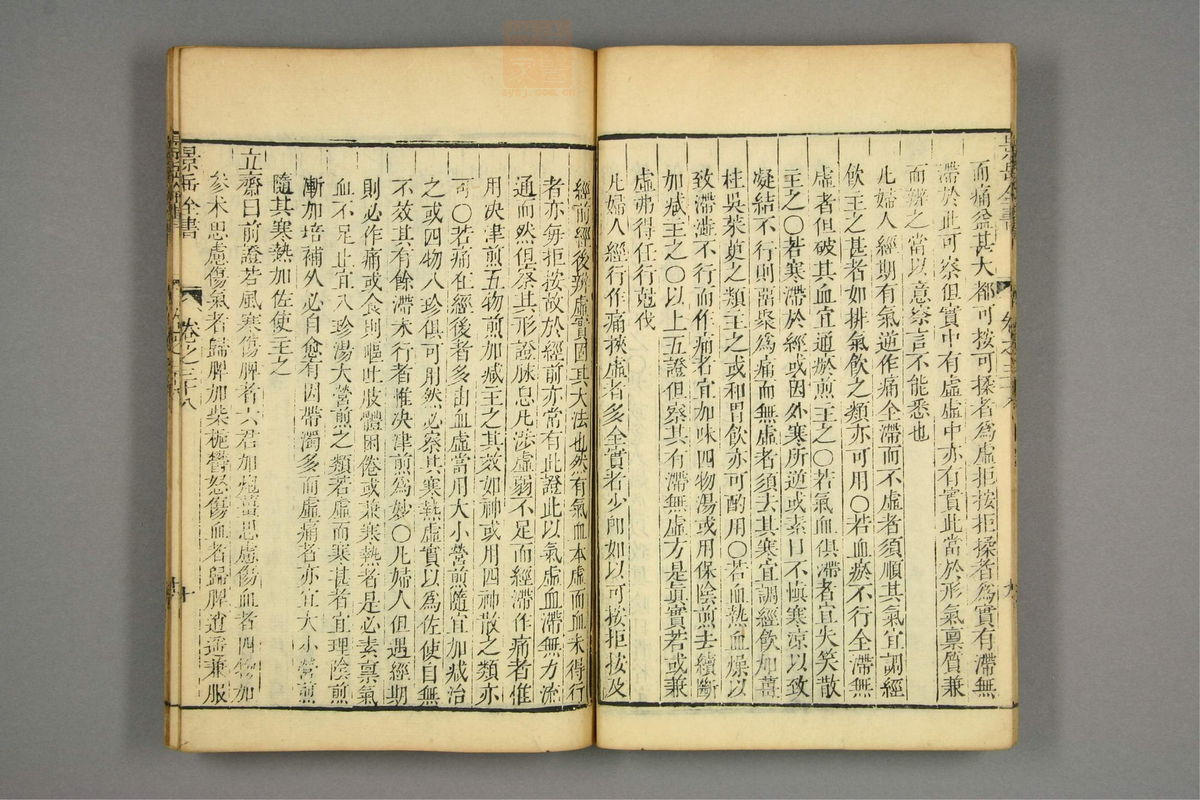 而痛益甚大都可按可揉者為虛拒按拒揉者為實有滯無
滯於此可察但實中有虛虛中亦有實此當於形氣稟質兼
而辨之當以意察言不能悉也
凡婦人經期有氣逆作痛全滯而不虛者須順其氣宜調經
飲主之甚者如排氣飲之類亦可用○若血瘀不行全滯無
虛者但破其血宜通瘀煎主之○若氣血俱滯者宜失笑散
主之○若寒滯於經或因外寒所逆或素日不慎寒涼以致
凝結不行則畱聚為痛而無虛者須去其寒宜調經飲加薑
桂吳茱萸之類主之或和胃飲亦可酌用○若血熱血燥以
致滯澁不行而作痛者宜加味四物湯或用保陰煎去續斷
加減主之○以上五證但察其有滯無虛方是真實若或兼
虛弗得任行剋伐
凡婦人經行作痛挾虛者多全實者少即如以可按拒按及
經前經後辨虛實固其大法也然有氣血本虛而血未得行
者亦每拒按故於經前亦常有此證此以氣虛血滯無力流
通而然但察其形證脈息凡涉虛弱不足而經滯作痛者惟
用決津煎五物煎加減主之其效如神或用四神散之類亦
可○若痛在經後者多由血虛當用大小營煎隨宜加減治
之或四物八珍俱可用然必察其寒熱虛實以為佐使自無
不效其有餘滯未行者惟決津煎為妙○凡婦人但遇經期
則必作痛或食則嘔吐肢體困倦或兼寒熱者是必素稟氣
血不足止宜八珍湯大營煎之類若虛而寒甚者宜理陰煎
漸加培補久必自愈有因帶濁多而虛痛者亦宜大小營煎
隨其寒熱加佐使主之
立齋曰前證若風寒傷脾者六君加炮薑思慮傷血者四物加
參朮思慮傷氣者歸脾加柴梔鬱怒傷血者歸脾逍遙兼服
景岳全書
卷之三十八
十